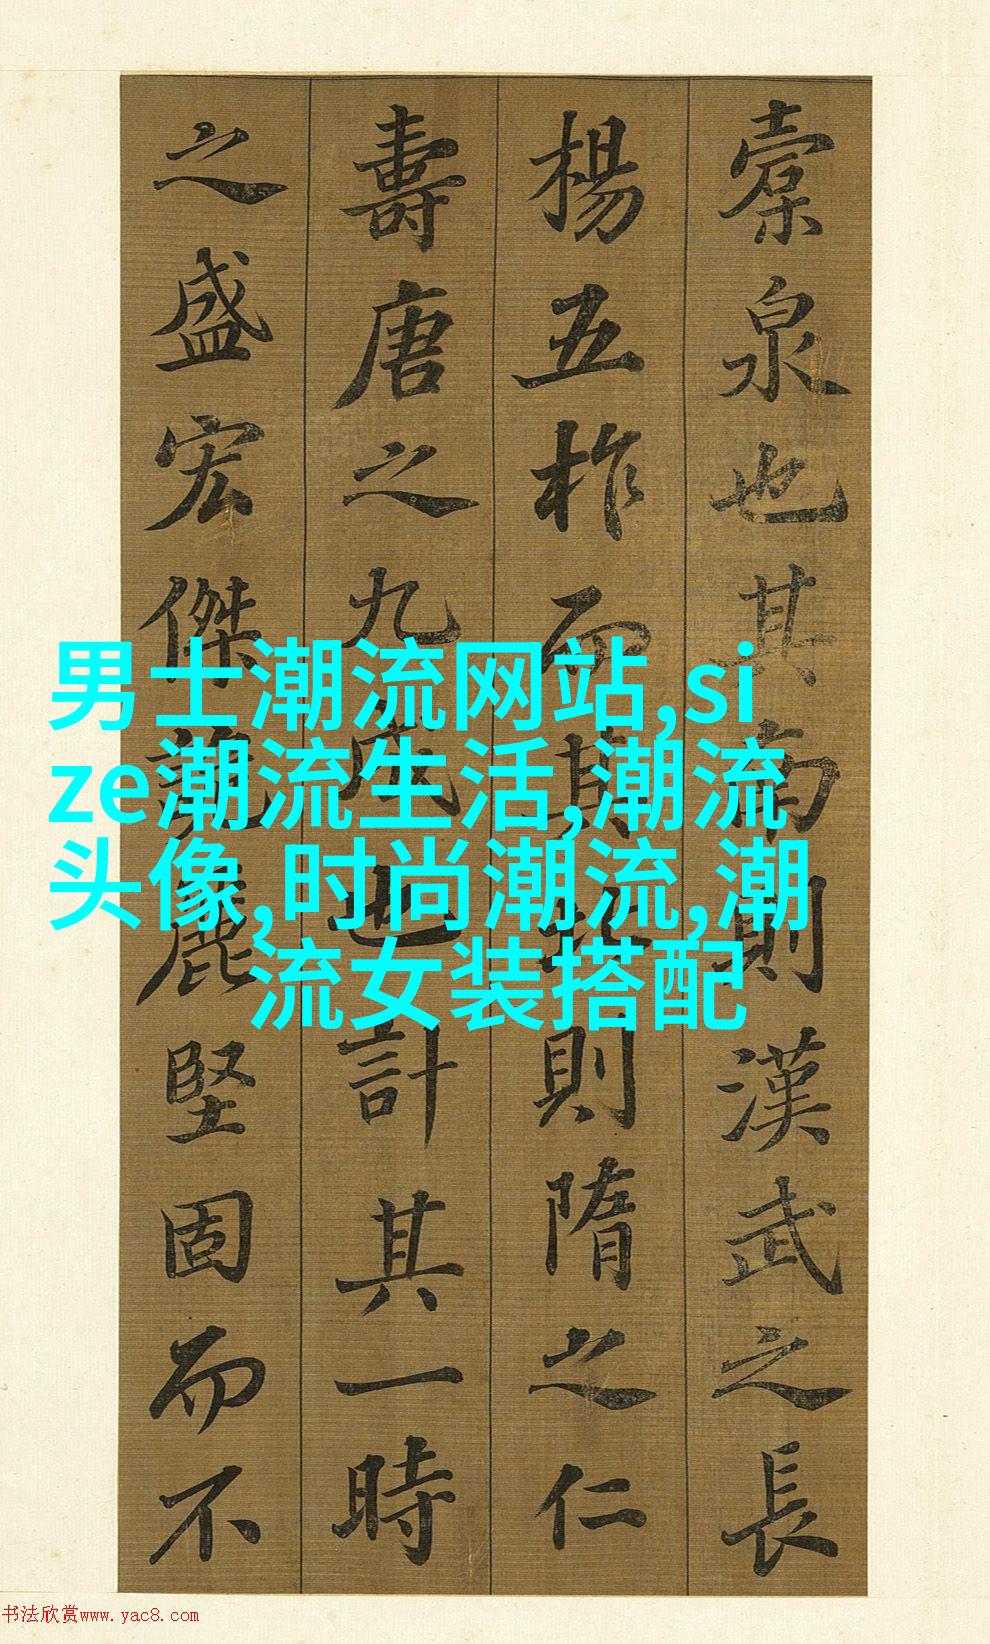 槖泉也其南則漢武之長
楊五柞而其北則隋之仁
壽唐之九成也計其一時
之盛宏傑詭麗堅固而不
男士潮流网站,si
ze潮流生活,潮流
头像,时尚潮流,潮
流女装搭配
书法欣赏www.yac8.com